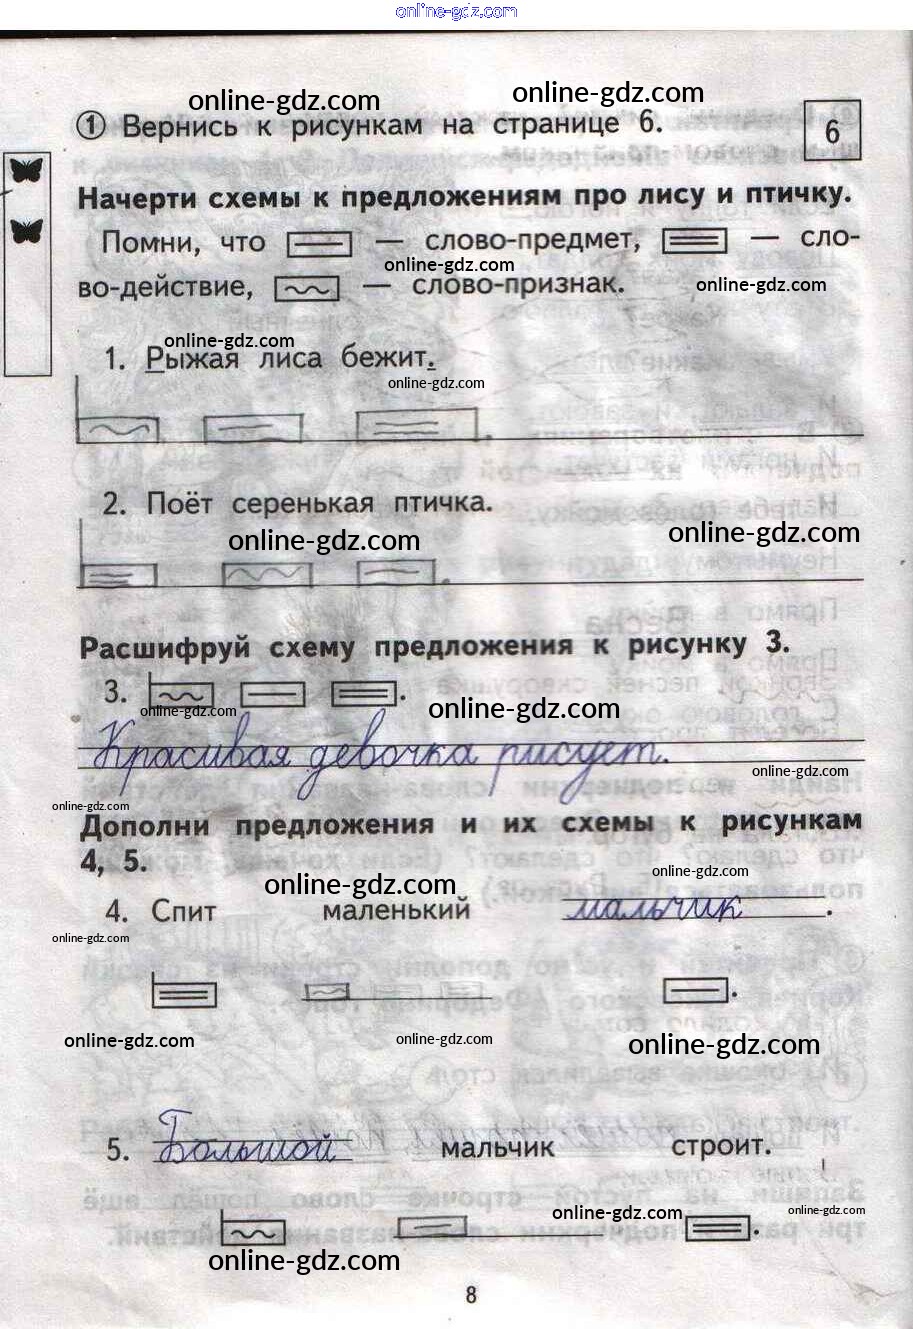 online-gdz.com
online-gdz.com online-gdz.com
① Вернись к рисункам на странице 6. 6
Начерти схемы к предложениям про лису и птичку.
Помни, что — слово-предмет, — сло-
online-gdz.com
во-действие, — слово-признак. online-gdz.com
online-gdz.com
1. Рыжая лиса бежит.
online-gdz.com
2. Поёт серенькая птичка.
online-gdz.com online-gdz.com
Расшифруй схему предложения к рисунку 3.
3. .
online-gdz.com online-gdz.com
Красивая девочка рисует.
online-gdz.com
online-gdz.com
Дополни предложения и их схемы к рисункам
4, 5.
online-gdz.com online-gdz.com
4. Спит маленький мальчик.
online-gdz.com
online-gdz.com online-gdz.com online-gdz.com
5. Большой мальчик строит.
online-gdz.com online-gdz.com
online-gdz.com
8